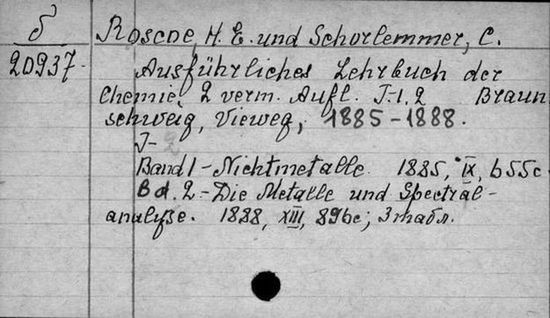 δ
20937.
Roscoe, H. E. und Schorlemmer, C.
Ausführliches Lehrbuch der
Chemie. 2 verm. Aufl. T.1,2 Braun
schweig, Vieweg, 1885-1888.
T-
Band 1-Nichtmetalle 1885, IX, 655c.
Bd. 2.-Die Metalle und Spectral-
analyse. 1888, XIII, 896c; 3 табл.